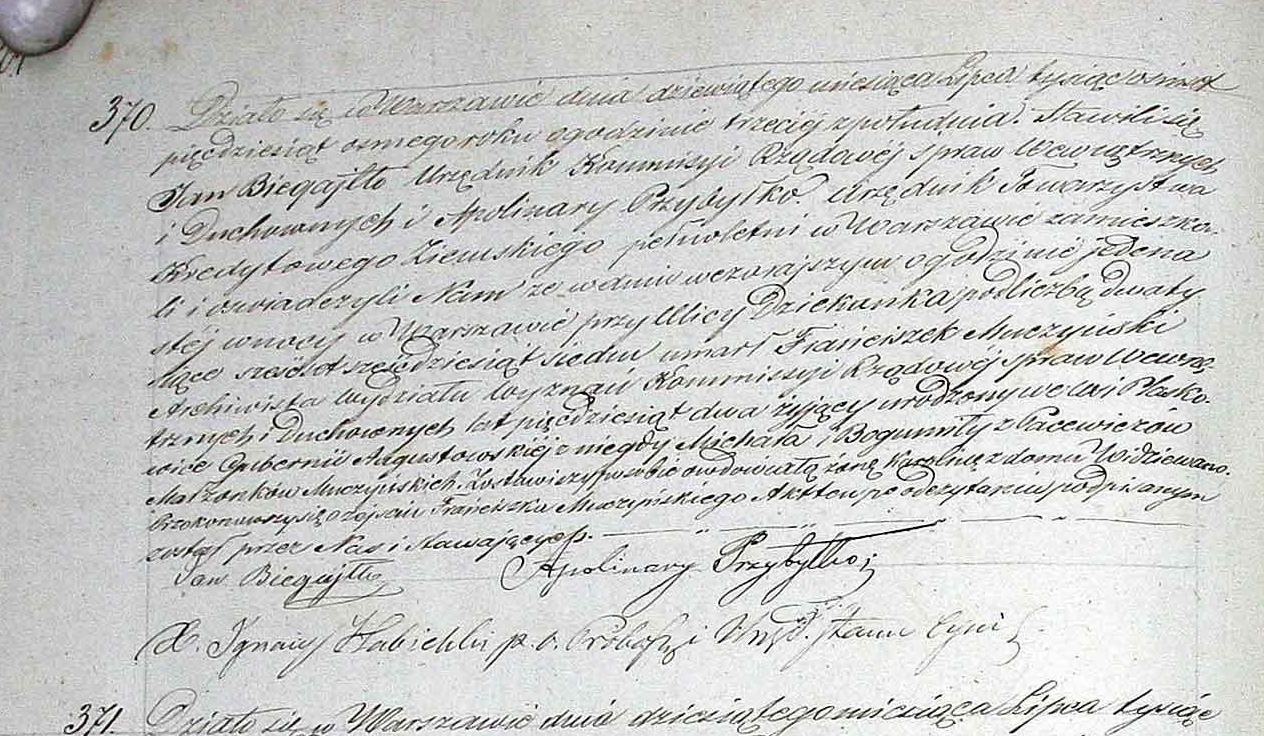 370. Działo się w Warszawie dnia dziewiątego miesiąca Lipca tysiąc ośmset
pięćdziesiąt osmego roku o godzinie trzeciej z południa. Stawili się
Jan Biegajłło Urzędnik Kommissyi Rządowéj Spraw Wewnętrznych
i Duchownych i Apolinary Przybyłko Urzędnik Towarzystwa
Kredytowego Ziemskiego pełnoletni w Warszawie zamieszka-
li i oswiadczyli Nam że w dniu wczorajszym o godzinie jedena
stéj w nocy w Warszawie przy Ulicy Dziekanka pod liczbą dwa ty
siące sześćset sześćdziesiąt siedm umarł Franciszek Muczyński
Archiwista Wydziału Wyznań Kommissyi Rządowéj Spraw Wewnę-
trznych i Duchownych lat pięćdziesiąt dwa żyjący urodzony we Wsi Płasko-
wice Gubernii Augustowskiéj z niegdy Michała i Bogumiły z Pacewiczów
Małżonków Muczyńskich. Zostawiwszy po sobie owdowiałą żonę Karolinę z domu
Przekonawszy się o zejściu Franciszka Muczyńskiego Akt ten po odczytaniu podpisanym
został przez Nas i Stawających.
Jan Biegajłło Apolinary Przybyłko
X. Ignacy p. o. Prob. i Urzęd. Stanu Cywi
371. Działo się w Warszawie dnia dziesiątego miesiąca Lipca tysiąc